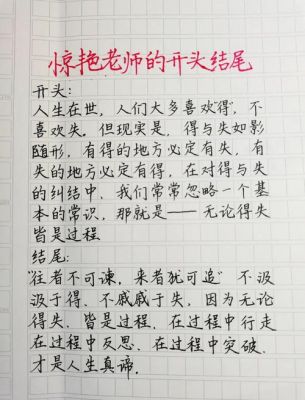 惊艳老师的开头结尾
开头:
人生在世，人们大多喜欢"得"，不
喜欢失。但现实是，得与失如影
随形，有得的地方必定有失，有
失的地方必定有得，在对得与失
的纠结中，我们常常忽略一个基
本的常识，那就是——无论得失
皆是过程
结尾:
"往者不可谏，来者犹可追"不汲
汲于得、不戚戚于失，因为无论
得失，皆是过程，在过程中行走
在过程中反思，在过程中突破，
才是人生真谛.